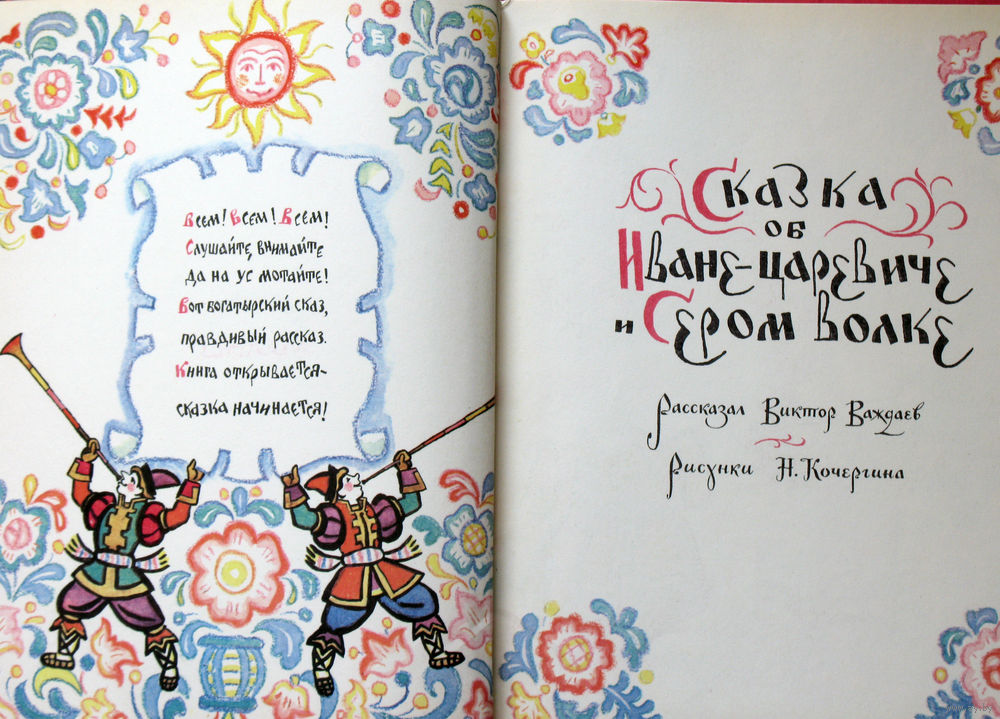 Всем! Всем! Всем!
Слушайте, внимайте
да на ус мотайте!
Вот богатырский сказ,
правдивый рассказ.
Книга открывается-
сказка начинается!
Сказка
об
Иване-царевиче
и Сером волке
Рассказал Виктор Важдаев
Рисунки Н. Кочергина